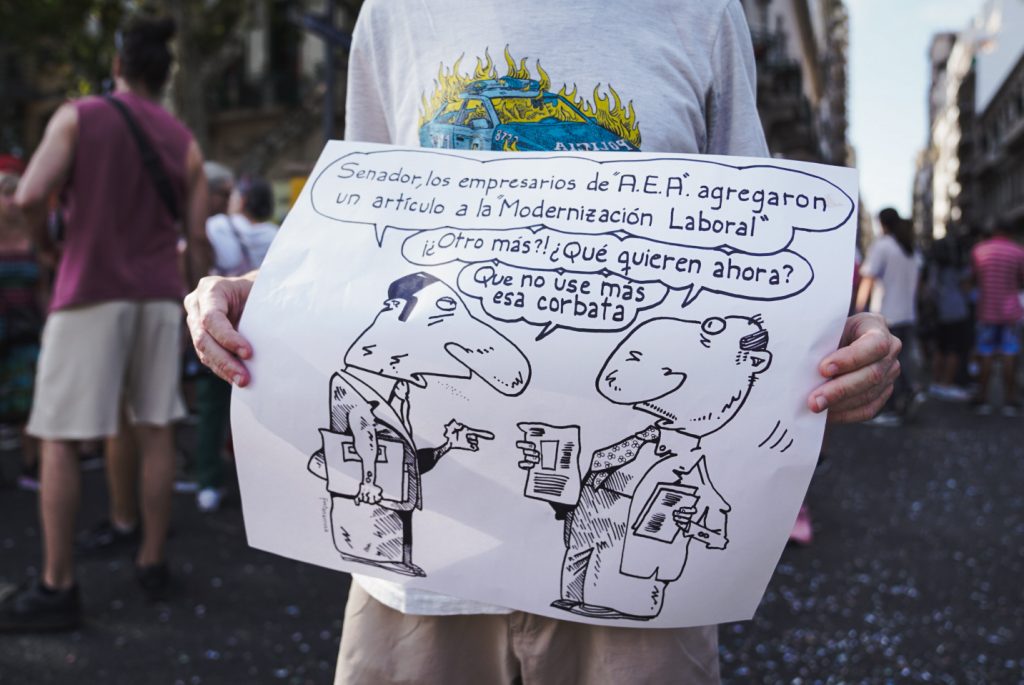 8722
POLICIA
Senador, los empresarios de "A.E.A". agregaron
un artículo a la "Modernización Laboral"
¡¿Otro más?! ¿Qué quieren ahora?
Que no use más
esa corbata